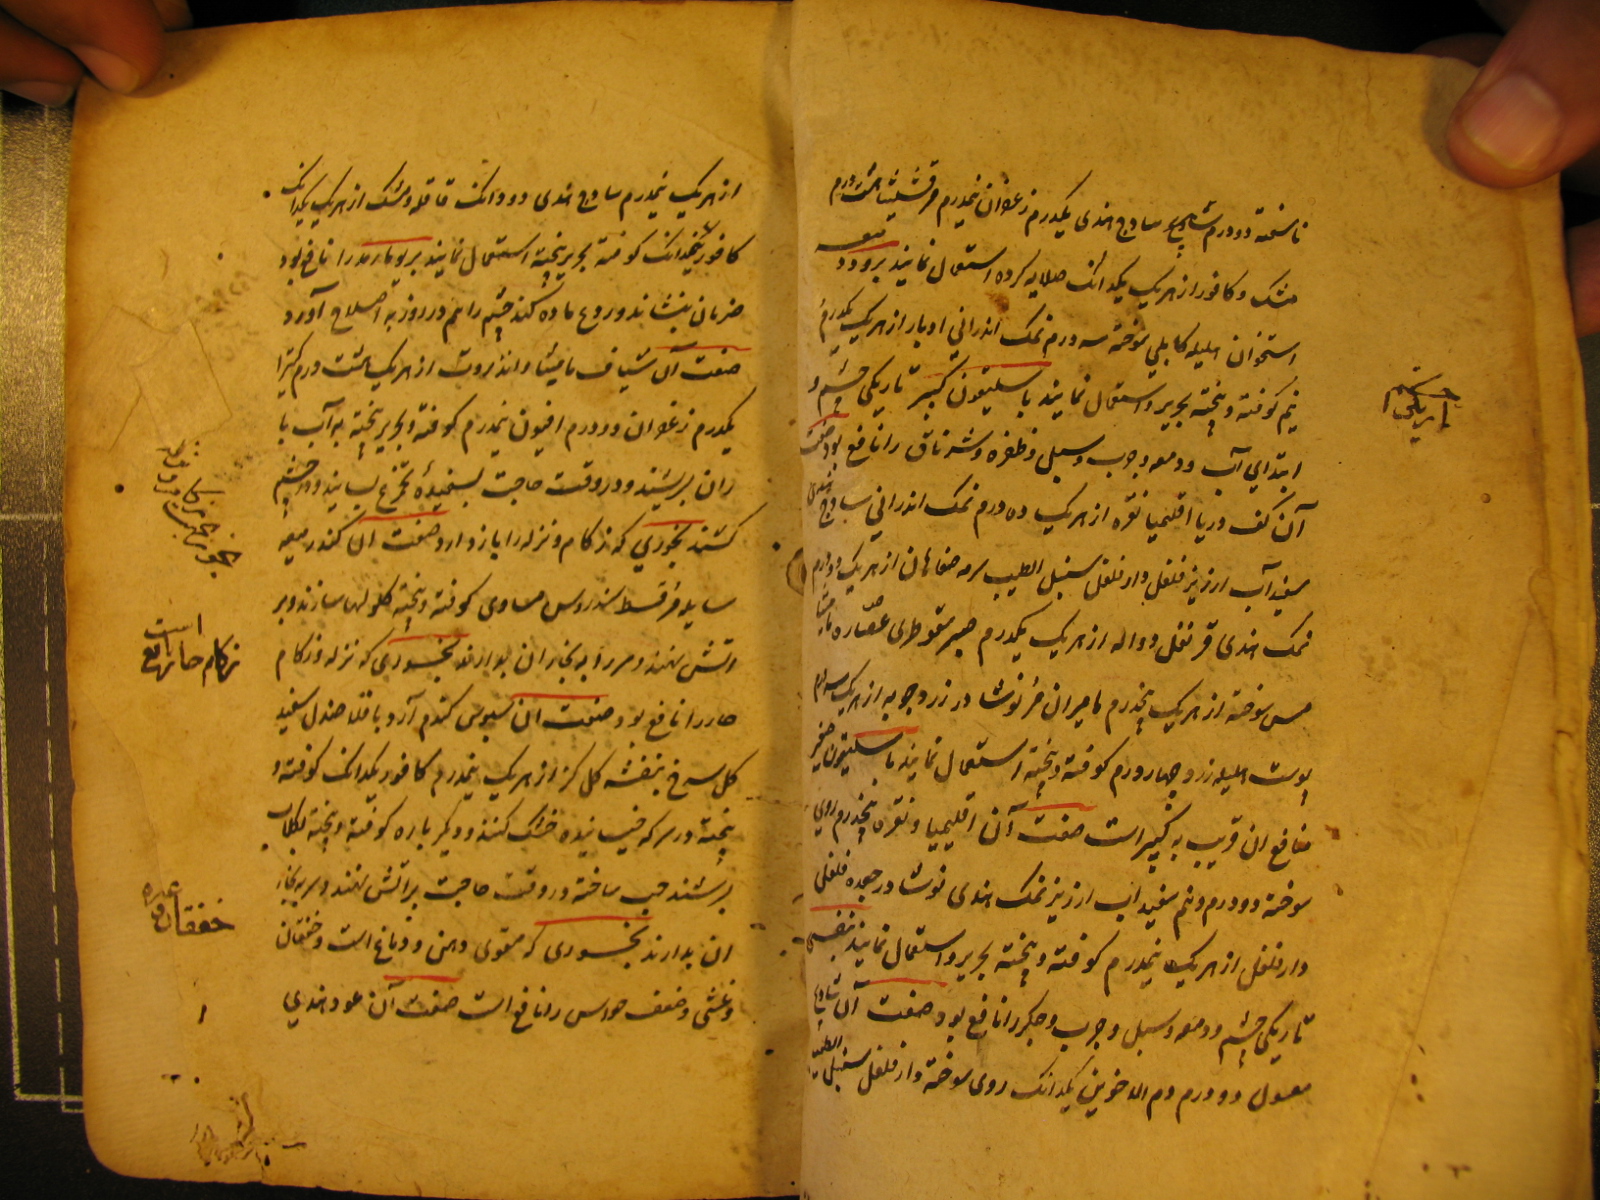 ناسفته دو درم شادنج ساذج هندی یکدرم زعفران نیمدرم مرقشیثا هشت درم
مشک و کافور از هریک یکدانک صلایه کرده استعمال نمایند برود
استخوان هلیله کابلی سوخته سه درم نمک اندرانی از هریک یکدرم
نیم کوفته و پخته بحریر و استعمال نمایند باسلیقون کبیر تاریکی چشم و
ابتدای آب و دمعه و جرب و سبل و ظفره و شرناق را نافع بود صفت
آن کف دریا اقلیمیا نقره از هریک ده درم نمک اندرانی ساذج هندی
سفیداب ارزیز فلفل دارفلفل سنبل الطیب سرمه صفاهان از هریک دو درم
نمک هندی قرنفل دواله از هریک یکدرم صبر سقوطری عصاره مامیثا
مس سوخته از هریک پنجدرم مامیران نوشادر زردچوبه از هریک سه درم
پوست هلیله زرد چهار درم کوفته و پخته استعمال نمایند باسلیقون صغیر
منافع ان قریب به کبیر است صفت آن اقلیمیا نقره پنجدرم روی
سوخته دو درم و نیم سفیداب ارزیز نمک هندی نوشادر جعده فلفل
دارفلفل از هریک نیمدرم کوفته و پخته بحریر و استعمال نمایند بنفسجی
تاریکی چشم و دمعه و سبل و جرب و را نافع بود صفت آن شادنج
مغسول دو درم دم الاخوین یکدانک روی سوخته دارفلفل سنبل الطیب
تاریکی چشم
از هریک نیمدرم ساذج هندی دو دانک قاقله و مشک از هریک یکدانک
کافور نیمدانک کوفته بحریر پخته استعمال نمایند را نافع بود
ضربان بنشاند و ردع ماده کند چشم را هم در روز به اصلاح آورد
صفت آن شیاف مامیثا و انزروت از هریک هشت درم کتیرا
یکدرم زعفران دو درم افیون نیمدرم کوفته و بحریر پخته به آب با
ران بسرشند و در وقت حاجت بسفیدهٔ تخم مرغ بسایند و در چشم
کشند بخوری که زکام و نزله را باز دارد صفت ان کندر میعه
سایله قسط سندروس مساوی کوفته و پخته کلولها سازند و بر
اتش نهند و سر را به بخار ان بدارند بخوری که نزله و زکام
حار را نافع بود صفت ان سبوس کندم آرد باقلا صندل سفید
کل سرخ بنفشه کل کز از هریک نیمدرم کافور یکدانک کوفته و
پخته در سرکه خیسانیده خشک کنند و دیگر باره کوفته و پخته بکلاب
بسرشند حب ساخته در وقت حاجت بر اتش نهند و سر به بخار
ان بدارند بخوری که مقوی دهن و دماغ است و خفقان
و غشی و ضعف حواس را نافع است صفت آن عود هندی
زکام حار را نافع
است
خفقان و غیره